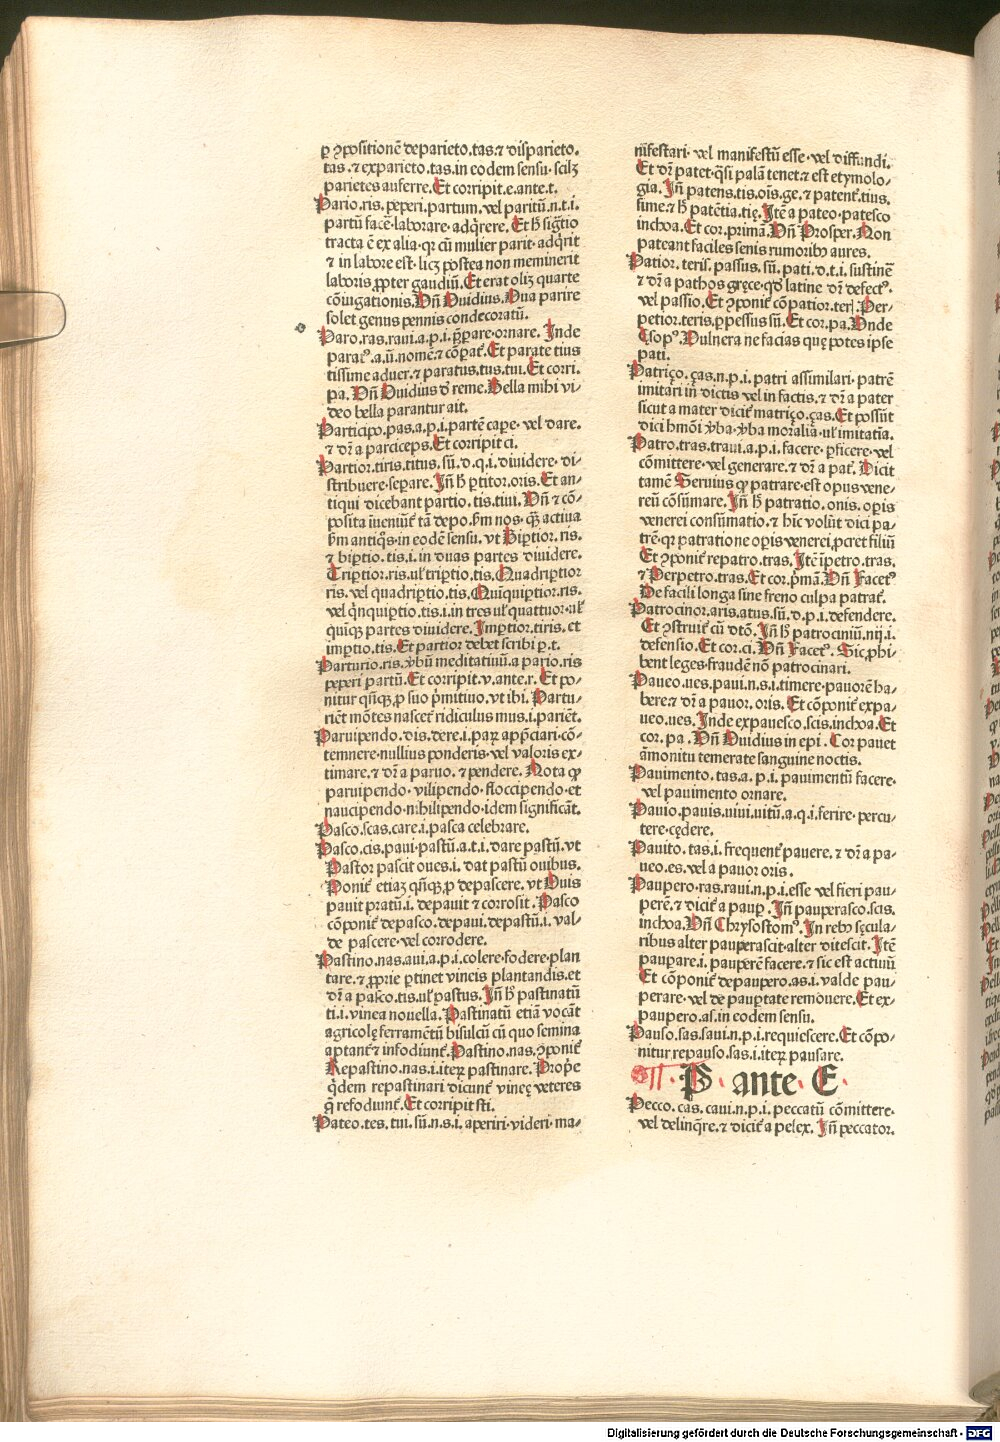 ꝑ ꝯpositionē deparieto.tas.⁊ disparieto.
tas.⁊ exparieto.tas.in eodem sensu.scilꝫ
parietes auferre.Et corripit.e.ante.t.
Pario.ris.peperi.partum.vel paritū.n.t.i.
partū facē.laborare.adq̄rere.Et h̄ siḡtio
tracta ē ex alia.qꝛ cū mulier parit.adq̄rit
⁊ in labore est.licꝫ postea non meminerit
laboris ꝓpter gaudiū.Et erat oliꝫ quarte
cōiugationis.Vn̄ Ouidius.Oua parire
solet genus pennis condecoratū.
Paro.ras.raui.a.p.i.p̄pare.ornare. Inde
paratꝰ.a.ū.nomē.⁊ cōpat̄.Et parate tius
tissime aduer.⁊ paratus.tus.tui.Et corri.
pa. Vn̄ Ouidius d̄ reme.Bella mihi vi/
deo bella parantur ait.
Participo.pas.a.p.i.partē cape.vel dare.
⁊ dr̄ a particeps.Et corripit ci.
Partior.tiris.titus.sū.d.q.i.diuidere.di/
stribuere.separe.In̄ h̄ ꝑtitor.oris.Et an/
tiqui dicebant partio.tis.tiui.Vn̄ ⁊ cō/
posita iueniūt̄ tā depo.ẜm nos.qꝫ actiua
ẜm antiqͦs.in eodē sensu.vt Biꝑtior.ris.
⁊ biꝑtio.tis.i.in duas partes diuidere.
Triꝑtior.ris.ul̓ triꝑtio.tis.Quadriꝑtior
ris.vel quadriꝑtio.tis.Quīquiꝑtior.ris.
vel qͥnquiꝑtio.tis.i.in tres ul̓ quattuor.ul̓
quīqꝫ partes diuidere.Imꝑtior.tiris.et
imꝑtio.tis.Et partior debet scribi ꝑ.t.
Parturio.ris.ꝟbū meditatiuū.a pario.ris
peperi partū.Et corripit.v.ante.r.Et po/
nitur qn̄qꝫ.ꝓ suo pͥmitiuo.vt ibi. Partu/
riēt mōtes nascet̄ ridiculus mus.i.pariēt.
Paruipendo.dis.dere.i.paꝝ app̄ciari.cō/
temnere.nullius ponderis.vel valoris ex/
timare.⁊ dr̄ a paruo.⁊ pendere. Nota ꝙ
paruipendo.vilipendo.floccipendo.et
naucipendo.nihilipendo.idem significāt.
Pasco.scas.care.i.pasca celebrare.
Pasco.cis.paui.pastū.a.t.i.dare pastū.vt
Pastor pascit oues.i.dat pastū ouibus.
Ponit̄ etiaꝫ qn̄qꝫ.ꝓ depascere.vt Ouis
pauit pratū.i.depauit ⁊ corrosit.Pasco
cōponit̄ depasco.depaui.depastū.i.val/
de pascere.vel corrodere.
Pastino.nas.aui.a.p.i.colere.fodere.plan
tare.⁊ ꝓprie ꝑtinet vineis plantandis.et
dr̄ a pasco.tis.ul̓ pastus.In̄ h̄ pastinatū
ti.i.vinea nouella.Pastinatū etiā vocāt
agricolę ferramētū bisulcū cū quo semina
aptant̄ ⁊ infodiunt̄.Pastino.nas.ꝯponit̄
Repastino.nas.i.iteꝝ pastinare.Propͥe
qͥdem repastinari dicunt̄ vineę veteres
q̄ refodiunt̄.Et corripit sti.
Pateo.tes.tui.sū.n.s.i.aperiri.videri.ma/
nifestari.vel manifestū esse.vel diffundi.
Et dr̄ patet.qͣsi palā tenet.⁊ est etymolo/
gia.In̄ patens.tis.oīs.ge.⁊ patent̄.tius.
sime.⁊ h̄ patētia.tię.Itē a pateo.patesco
inchoa.Et cor.primā.Vn̄ Prosper.Non
pateant faciles senis rumoribꝰ aures.
Patior.teris.passus.sū.pati.d.t.i.sustinē
⁊ dr̄ a pathos gręce.qd̓ latine dr̄ defectꝰ.
vel passio.Et ꝯponit̄ cōpatior.ter.Per/
petior.teris.ꝑpessus sū.Et cor.pa.Vnde
Esopꝰ.Vulnera ne facias quę potes ipse
pati.
Patriço.ças.n.p.i.patri assimilari.patrē
imitari in dictis vel in factis.⁊ dr̄ a pater
sicut a mater dicit̄ matriço.ças.Et possūt
dici hmōi ꝟba.ꝟba moralia.ul̓ imitatīa.
Patro.tras.traui.a.p.i.facere.ꝑficere.vel
cōmittere.vel generare.⁊ dr̄ a pat̄. Dicit
tamē Seruius ꝙ patrare.est opus vene/
reū cōsūmare. In̄ h̄ patratio.onis.opis
venerei consūmatio.⁊ hic volūt dici pa/
trē.qꝛ patratione opis venerei ꝓcret filiū
Et ꝯponit̄ repatro.tras.Itē īpetro.tras.
⁊ Perpetro.tras.Et cor.pͥmā.Vn̄ Facetꝰ
De facili longa sine freno culpa patrat̄.
Patrocinor.aris.atus.sū.d.p.i.defendere.
Et ꝯstruit̄ cū dtō. In̄ h̄ patrociniū.nij.i.
defensio.Et cor.ci.Vn̄ Facetꝰ. Sic ꝓhi/
bent leges.fraudē nō patrocinari.
Paueo.ues.paui.n.s.i.timere.pauorē ha/
bere.⁊ dr̄ a pauor.oris. Et cōponit̄ expa/
ueo.ues. Inde expauesco.scis.inchoa.Et
cor.pa. Vn̄ Ouidius in epi. Cor pauet
āmonitu temerate sanguine noctis.
Pauimento.tas.a.p.i.pauimentū facere.
vel pauimento ornare.
Pauio.pauis.uiui.uitū.a.q.i.ferire.percu/
tere.cędere.
Pauito.tas.i.frequent̄ pauere.⁊ dr̄ a pa/
ueo.es.vel a pauor oris.
Paupero.ras.raui.n.p.i.esse vel fieri pau/
perē.⁊ dicit̄ a pauꝑ. In̄ pauperasco.scis.
inchoa.Vn̄ Chrysostomꝰ.In rebꝰ sęcula/
ribus alter pauperascit.alter ditescit.Itē
paupare.i.pauperē facere.⁊ sic est actiuū
Et cōponit̄ depaupero.as.i.valde pau/
perare.vel de pauꝑtate remouere.Et ex/
paupero.as.in eodem sensu.
Pauso.sas.saui.n.p.i.requiescere.Et cōpo/
nitur repauso.sas.i.iteꝝ pausare.
P ante E
Pecco.cas.caui.n.p.i.peccatū cōmittere.
vel delinq̄re.⁊ dicit̄ a pelex. In̄ peccator.
Digitalisierung gefördert durch die Deutsche Forschungsgemeinschaft - DFG